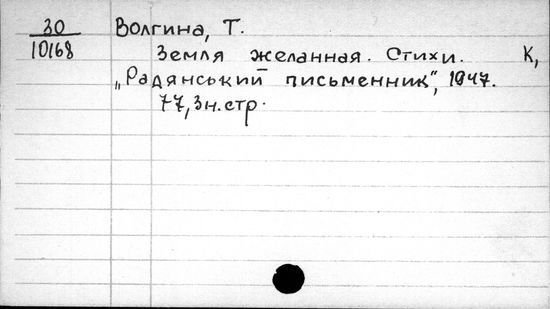 30
10168
Волгина, Т.
Земля желанная. Стихи. К,
„Радянський письменник", 1947.
77, 3н. стр.